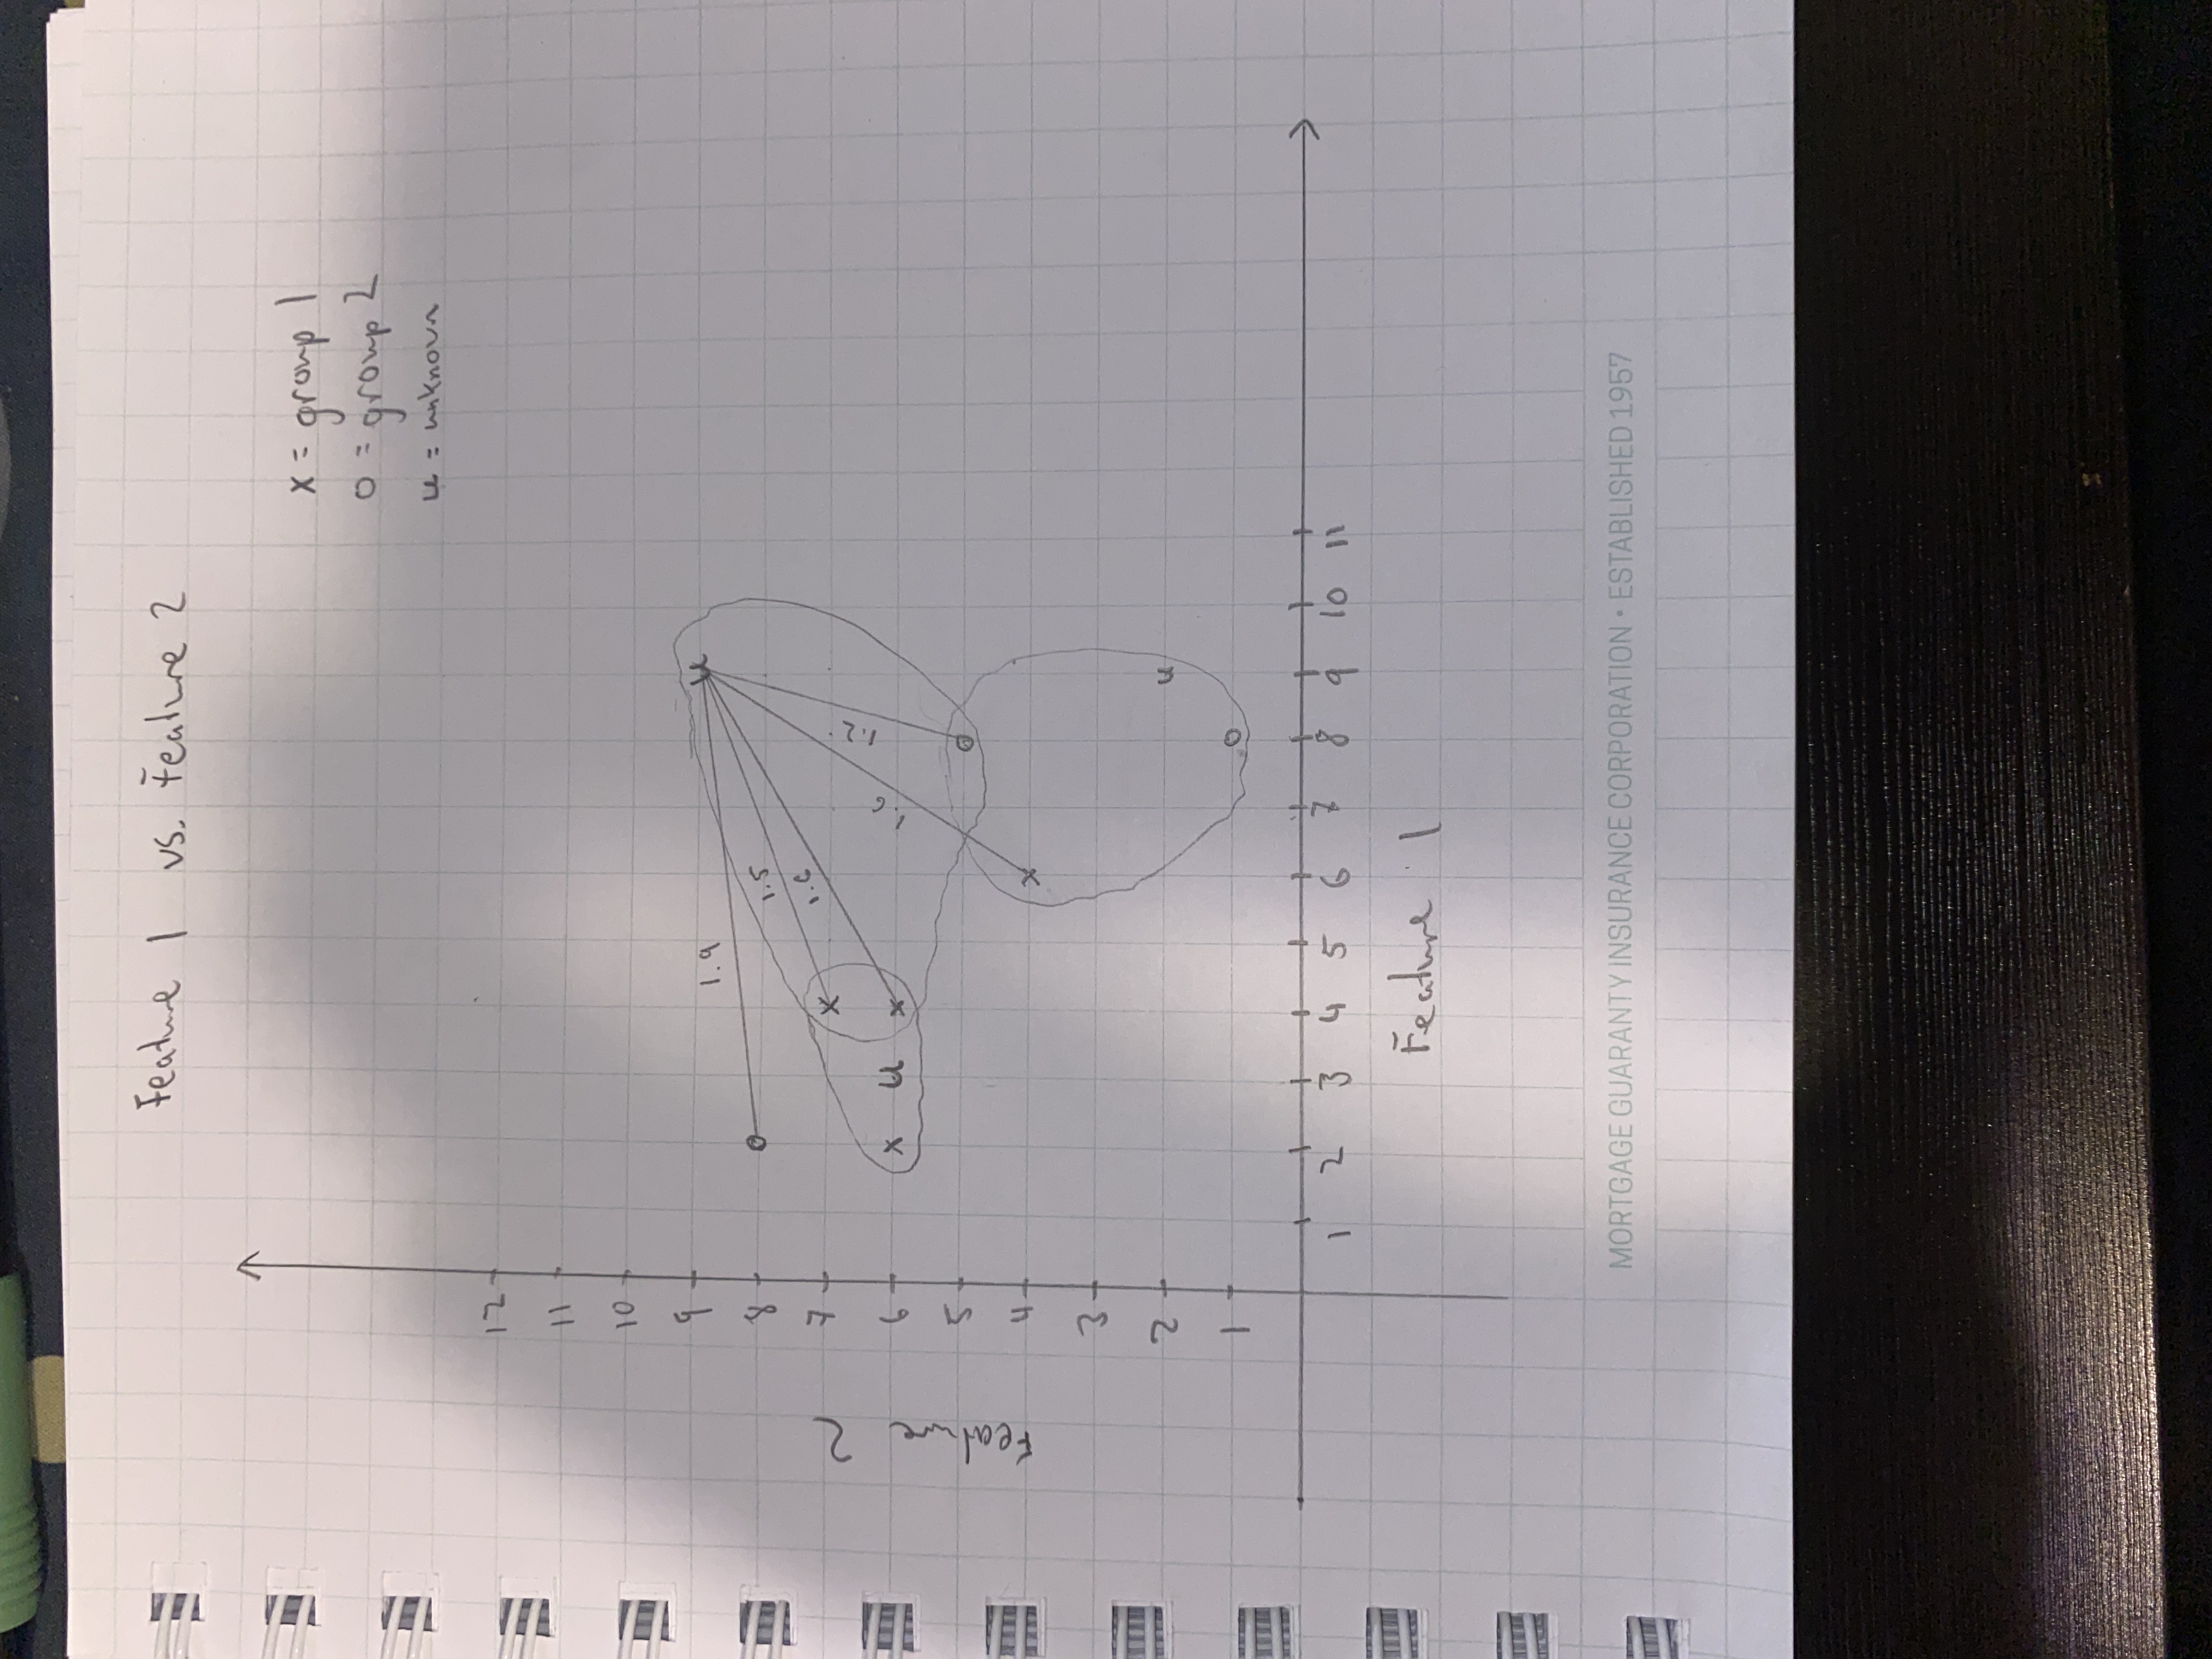 Feature 1 vs. Feature 2
x = group 1
o = group 2
u = unknown
12
11
10
9
8
7
6
5
4
3
2
1
Feature 2
1.9
1.5
1.6
1.6
1.2
u
o
x
x u x
o
x
u
o
1 2 3 4 5 6 7 8 9 10 11
Feature 1
MORTGAGE GUARANTY INSURANCE CORPORATION • ESTABLISHED 1957